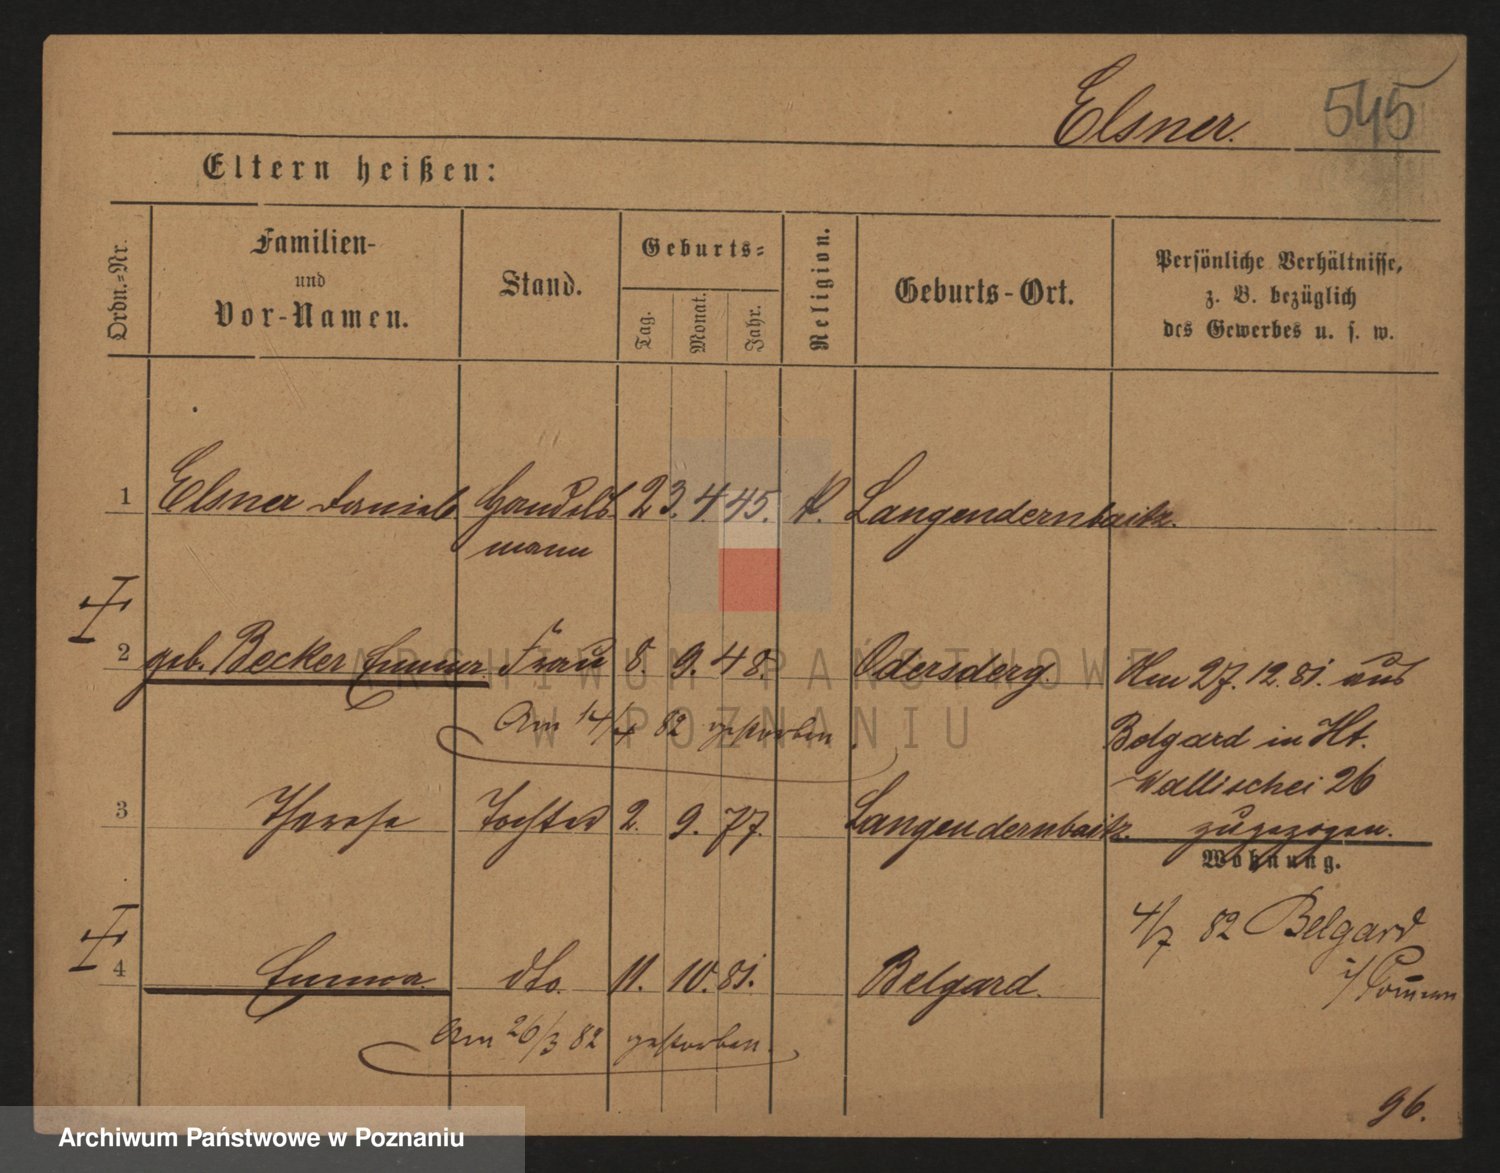 Elsner. 545
Eltern heißen:
Ordn.-Nr. Familien- und Vor-Namen. Stand. Geburts- Tag. Monat. Jahr. Religion. Geburts-Ort. Persönliche Verhältnisse, z. B. bezüglich des Gewerbes u. s. w.
1 Elsner Daniel Handels 23. 4. 45. k. Langendernbach
mann
2 geb. Becker Emma Frau 8. 9. 48. Odersberg. Am 27. 12. 81. aus
Am 14/4 82 gestorben Belgard in Ht.
Wallischei 26
3 Therese Tochter 2. 9. 77. Langendernbach zugezogen.
Wohnung.
4/7 82 Belgard
i/ Pommern
4 Emma dto. 11. 10. 81. Belgard.
Am 26/3 82 gestorben.
96.
ARCHIWUM PAŃSTWOWE
W POZNANIU
Archiwum Państwowe w Poznaniu